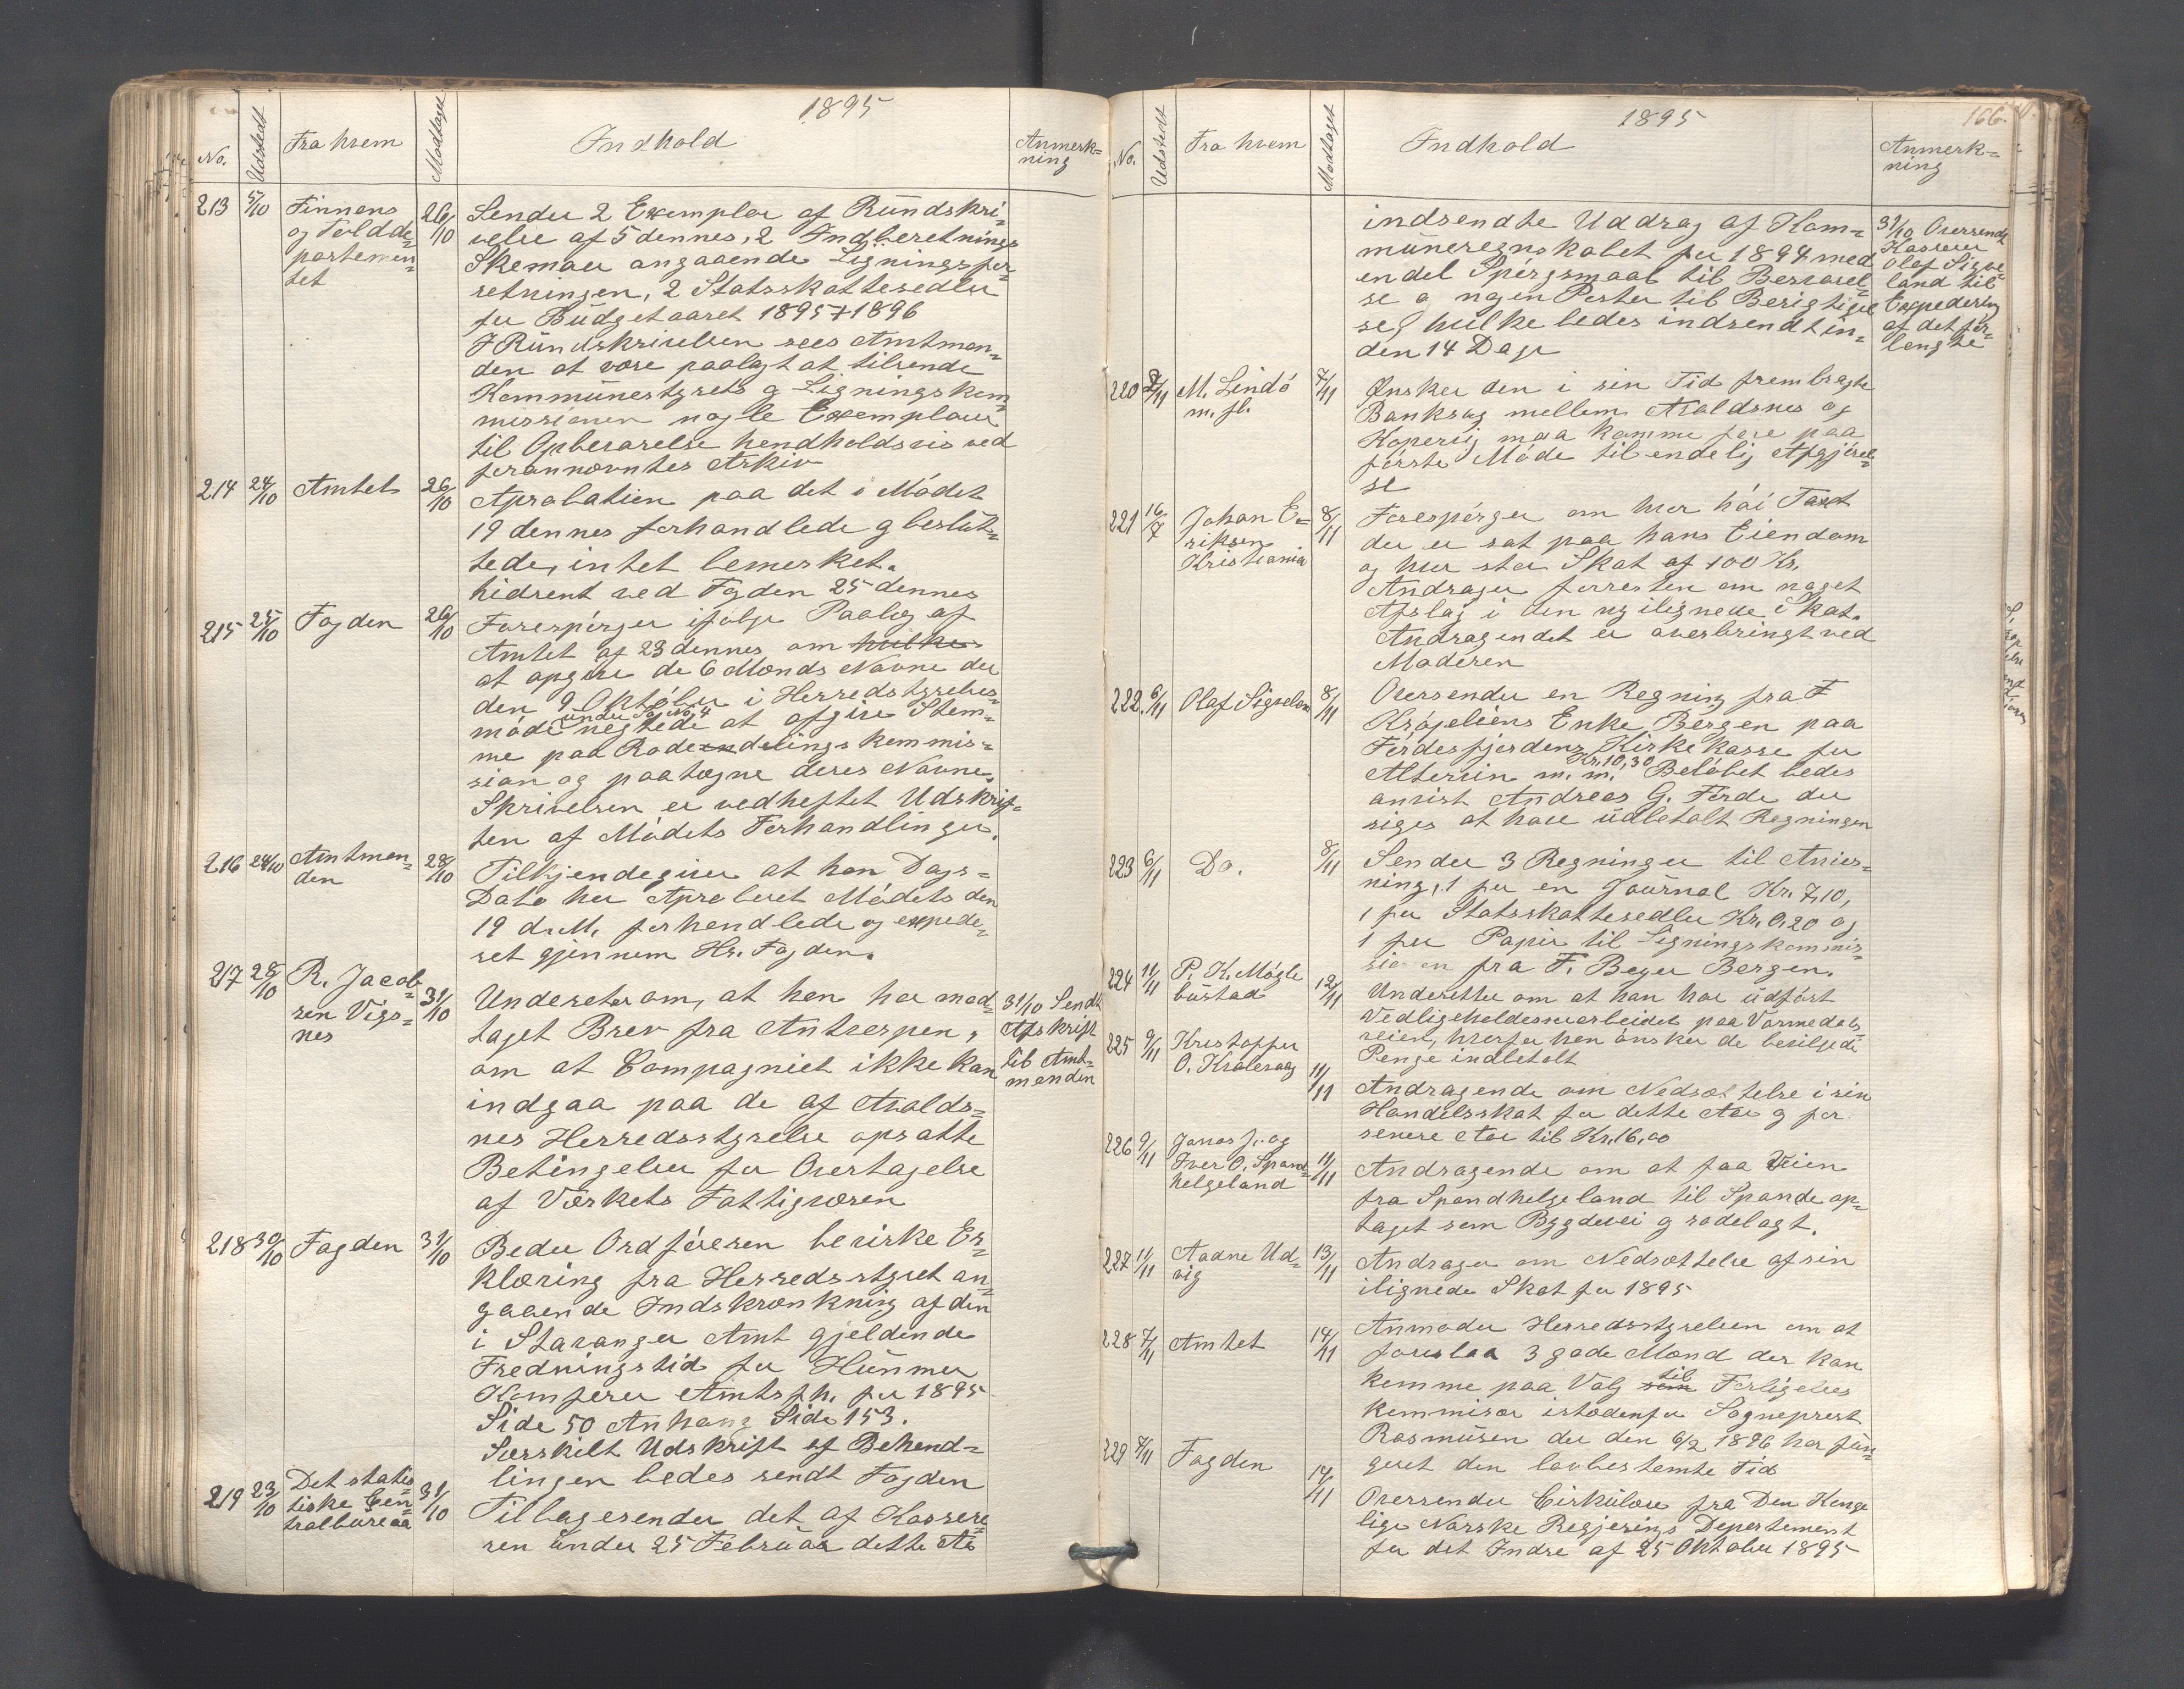 1895
No. Udstedt Fra hvem Modtaget Indhold Anmerk=
ning
213 5/10 Finnans 26/10 Sender 2 Exemplar af Rundskri=
og Toldde= velse af 5 dennes, 2 Indberetnings
partemen= Skemaer angaaende Ligningsfor
tet retningen, 2 Statsskattesedler
for Budgetaaret 1895 + 1896
I Rundskrivelsen sees Amtman=
den at være paalagt at tilsende
Kommunestyrets og Ligningskom=
missionen nogle Exemplarer
til Opbevarelse hendholdsvis ved
forannævntes Arkiv
214 24/10 Amtet 26/10 Aprobation paa det i Mødet
19 dennes forhandlede og beslut=
tede, intet bemerket.
hidsent ved Fogden 25 dennes
215 25/10 Fogden 26/10 Forespørger ifølge Paalæg af
Amtet af 23 dennes om hvilke
at opgive de 6 Mænds Navne der
den 9 Oktober i Herredstyrelses
møde under Sag No. 4 negtede at afgive Stem=
me paa Rodeinddelingskommis=
sion og paategne deres Navne.
Skrivelsen er vedheftet Udskrif=
ten af Mødets Forhandlinger.
216 24/10 Amtman= 28/10 Tilkjendegiver at han Dags=
den Dato har Aproberet Mødets den
19 d.M. forhendlede og expede=
ret gjennem Hr. Fogden.
217 28/10 R. Jacob= 31/10 Underetter om, at han har mod= 31/10 Sendt
sen Vigs= taget Brev fra Antverpen, Afskrift
nes om at Compagniet ikke kan til Amt=
manden
indgaa paa de af Avalds=
nes Herredsstyrelse opsatte
Betingelser for Overtagelse
af Værkets Fattigvæsen
218 30/10 Fogden 31/10 Beder Ordføreren bevirke Er=
klæring fra Herredsstyret an=
gaaende Indskrænkning af den
i Stavanger Amt gjeldende
Fredningstid for Hummer
Komferer Amtsfh. for 1895
Side 50 Anhang Side 153.
Særskilt Udskrift af Behend=
lingen bedes sendt Fogden
219 23/10 Det statis= 31/10 Tilbagesender det af Kassere=
tiske Cen= ren under 25 Februar dette Aar
tralbureaa
1895 166.
No. Udstedt Fra hvem Modtaget Indhold Anmerk=
ning
indsendte Uddrag af Kom= 31/10 Oversendt
muneregnskabet for 1894 med Kasserer
endel Spørgsmaal til Besvarel= Olaf Sigve=
se og nogen Poster til Berigtigel land til
se, hvilke bedes indsendt in= Expedering
den 14 Dage af det for=
lengte
220 7/11 M. Lindø 7/11 Ønsker den i sin Tid frembragte
m. fl. Banksag mellem Avaldsnes og
Kopervig maa komme fore paa
første Møde til endelig Afgjørel=
se
221 16/7 Johan E= 8/11 Forespørger om hvor høi Taxt
riksen der er sat paa hans Eiendom
Kristiania og hvor stor Skat af 100 Kr.
Andrager forresten om noget
Afslag i den ny ilignede Skat.
Andragendet er overbringt ved
Moderen
222. 6/11 Olaf Sigveland 8/11 Oversender en Regning fra F
Krøpeliens Enke Bergen paa
Førdesfjordens Kirkekasse for
Altervin m. m. Kr. 10,30 Beløbet bedes
anvist Andreas G. Førde der
siges at have udbetalt Regningen
223 6/11 Do. 8/11 Sender 3 Regninger til Anvis=
ning, 1 for en Journal Kr. 7,10,
1 for Statsskattesedler Kr. 0,20 og
1 for Papir til Ligningskommis=
sionen fra F. Beyer Bergen.
224 11/11 P. K. Møgle 12/11 Underetter om at han har udført
bustad Vedligeholdesesarbeidet paa Vormedals
veien, hvorfor han ønsker de bevilgede
Penge indbetalt
225 9/11 Kristoffer 11/11 Andragende om Nedsættelse i sin
O. Kvalevaag Handelsskat for dette Aar og for
senere Aar til Kr. 16,00
226 9/11 Jonas J. og 11/11 Andragende om at faa Veien
Iver O. Spand= fra Spandhelgeland til Spande op=
helgeland taget som Bygdevei og rodelagt.
227 11/11 Aadne Ud= 13/11 Andrager om Nedsættelse af sin
vig ilignede Skat for 1895
228 7/11 Amtet 14/11 Anmoder Herredsstyrelsen om at
foreslaa 3 gode Mænd der kan
komme paa Valg som til Forligelses
kommisær istedenfor Sogneprest
Rasmusen der den 6/2 1896 har fun
geret den lovbestemte Tid
229 7/11 Fogden 14/11 Oversender Cirkulære fra Den Konge
lige Norske Regjerings Departement
for det Indre af 25 Oktober 1895